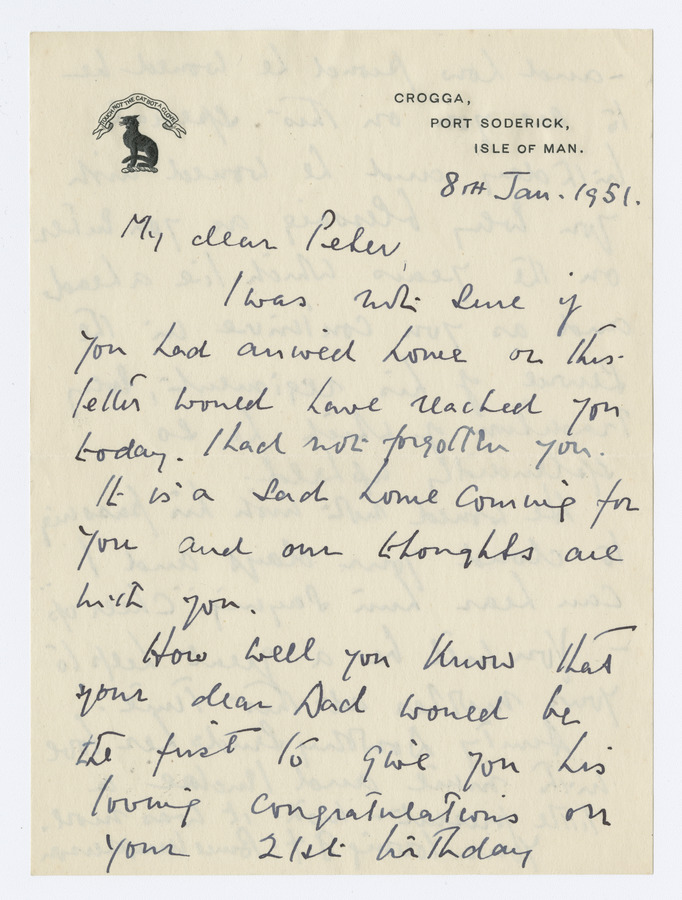 TOUCH NOT THE CAT BOT A GLOVE
CROGGA,
PORT SODERICK,
ISLE OF MAN.
8TH Jan. 1951.
My dear Peter,
I was not sure if
you had arrived home or this
letter would have reached you
today. I had not forgotten you.
It is a sad home coming for
you and our thoughts are
with you.
How well you know that
your dear Dad would be
the first to give you his
loving congratulations on
your 21st birthday